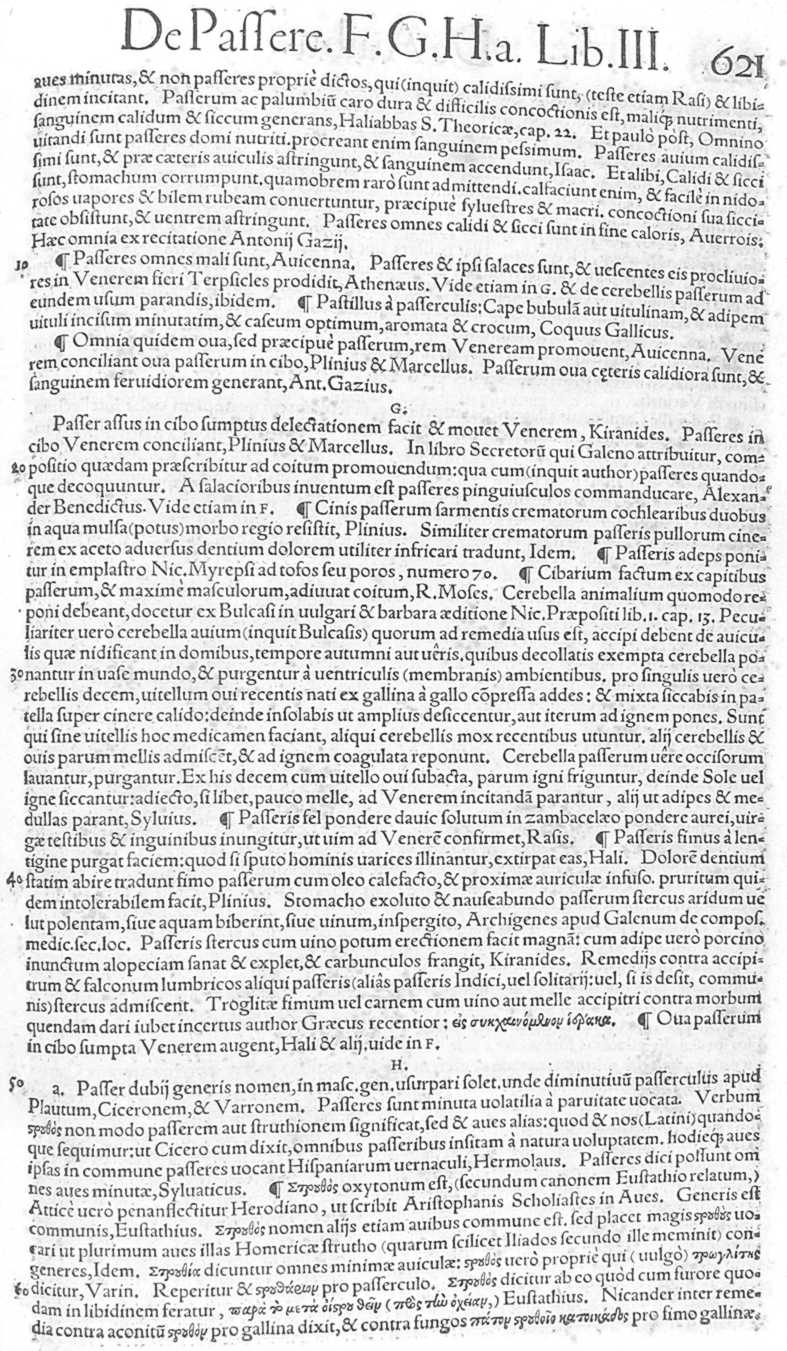 De Passere. F. G. H. a. Lib. III. 621
aues minutas, & non passeres propriè dictos, qui (inquit) calidissimi sunt, (teste etiam Rasi) & libi-
dinem incitant. Passerum ac palumbiũ caro dura & difficilis concoctionis est, maliq; nutrimenti,
sanguinem calidum & siccum generans, Haliabbas S. Theoricæ, cap. 22. Et paulò pòst, Omnino
uitandi sunt passeres domi nutriti. procreant enim sanguinem pessimum. Passeres auium calidis-
simi sunt, & præ cæteris auiculis astringunt, & sanguinem accendunt, Isaac. Et alibi, Calidi & sicci
sunt, stomachum corrumpunt. quamobrem rarò sunt admittendi. calfaciunt enim, & facilè in nido-
rosos uapores & bilem rubeam conuertuntur, præcipuè syluestres & macri. concoctioni sua sicci-
tate obsistunt, & uentrem astringunt. Passeres omnes calidi & sicci sunt in fine caloris, Auerrois.
Hæc omnia ex recitatione Antonij Gazij.
10 ¶ Passeres omnes mali sunt, Auicenna. Passeres & ipsi salaces sunt, & uescentes eis procliuio-
res in Venerem fieri Terpsicles prodidit, Athenæus. Vide etiam in G. & de cerebellis passerum ad
eundem usum parandis, ibidem. ¶ Pastillus à passerculis: Cape bubulã aut uitulinam, & adipem
uituli incisum minutatim, & caseum optimum, aromata & crocum, Coquus Gallicus.
¶ Omnia quidem oua, sed præcipuè passerum, rem Veneream promouent, Auicenna. Vene
rem conciliant oua passerum in cibo, Plinius & Marcellus. Passerum oua cęteris calidiora sunt, &
sanguinem feruidiorem generant, Ant. Gazius.
G.
Passer assus in cibo sumptus delectationem facit & mouet Venerem, Kiranides. Passeres in
cibo Venerem conciliant, Plinius & Marcellus. In libro Secretorũ qui Galeno attribuitur, com-
20 positio quædam præscribitur ad coitum promouendum: qua cum (inquit author) passeres quando-
que decoquuntur. A salacioribus inuentum est passeres pinguiusculos commanducare, Alexan-
der Benedictus. Vide etiam in F. ¶ Cinis passerum sarmentis crematorum cochlearibus duobus
in aqua mulsa (potus) morbo regio resistit, Plinius. Similiter crematorum passeris pullorum cine-
rem ex aceto aduersus dentium dolorem utiliter infricari tradunt, Idem. ¶ Passeris adeps poni-
tur in emplastro Nic. Myrepsi ad tofos seu poros, numero 70. ¶ Cibarium factum ex capitibus
passerum, & maximè masculorum, adiuuat coitum, R. Moses. Cerebella animalium quomodo re-
poni debeant, docetur ex Bulcasi in uulgari & barbara æditione Nic. Præpositi lib. 1. cap. 13. Pecu-
liariter uerò cerebella auium (inquit Bulcasis) quorum ad remedia usus est, accipi debent de auicu-
lis quæ nidificant in domibus, tempore autumni aut uẽris. quibus decollatis exempta cerebella po-
30 nantur in uase mundo, & purgentur à uentriculis (membranis) ambientibus. pro singulis uerò ce-
rebellis decem, uitellum oui recentis nati ex gallina à gallo cõpressa addes: & mixta siccabis in pa-
tella super cinere calido: deinde insolabis ut amplius desiccentur, aut iterum ad ignem pones. Sunt
qui sine uitellis hoc medicamen faciant, aliqui cerebellis mox recentibus utuntur. alij cerebellis &
ouis parum mellis admiscẽt, & ad ignem coagulata reponunt. Cerebella passerum uêre occisorum
lauantur, purgantur. Ex his decem cum uitello oui subacta, parum igni friguntur, deinde Sole uel
igne siccantur: adiecto, si libet, pauco melle, ad Venerem incitandã parantur, alij ut adipes & me-
dullas parant, Syluius. ¶ Passeris fel pondere dauic solutum in zambacelæo pondere aurei, uir-
gæ testibus & inguinibus inungitur, ut uim ad Venerẽ confirmet, Rasis. ¶ Passeris fimus à len-
tigine purgat faciem: quod si sputo hominis uarices illinantur, extirpat eas, Hali. Dolorẽ dentium
40 statim abire tradunt fimo passerum cum oleo calefacto, & proximæ auriculæ infuso. pruritum qui-
dem intolerabilem facit, Plinius. Stomacho exoluto & nauseabundo passerum stercus aridum ue
lut polentam, siue aquam biberint, siue uinum, inspergito, Archigenes apud Galenum de compos.
medic. sec. loc. Passeris stercus cum uino potum erectionem facit magnã: cum adipe uerò porcino
inunctum alopeciam sanat & explet, & carbunculos frangit, Kiranides. Remedijs contra accipi-
trum & falconum lumbricos aliqui passeris (aliâs passeris Indici, uel solitarij: uel, si is desit, commu-
nis) stercus admiscent. Troglitæ fimum uel carnem cum uino aut melle accipitri contra morbum
quendam dari iubet incertus author Græcus recentior: εἰς συκχαινόμενον ἱέρακα. ¶ Oua passerum
in cibo sumpta Venerem augent, Hali & alij. uide in F.
H.
50 a. Passer dubij generis nomen, in masc. gen. usurpari solet. unde diminutiuũ passerculus apud
Plautum, Ciceronem, & Varronem. Passeres sunt minuta uolatilia à paruitate uocata. Verbum
στρουθὸς non modo passerem aut struthionem significat, sed & aues alias: quod & nos (Latini) quando-
que sequimur: ut Cicero cum dixit, omnibus passeribus insitam à natura uoluptatem. hodieq; aues
ipsas in commune passeres uocant Hispaniarum uernaculi, Hermolaus. Passeres dici possunt om
nes aues minutæ, Syluaticus. ¶ Στρουθὸς oxytonum est, (secundum canonem Eustathio relatum,)
Atticè uerò penanflectitur Herodiano, ut scribit Aristophanis Scholiastes in Aues. Generis est
communis, Eustathius. Στρουθὸς nomen alijs etiam auibus commune est. sed placet magis στρουθοὺς uo-
cari ut plurimum aues illas Homericæ strutho (quarum scilicet Iliados secundo ille meminit) con-
generes, Idem. Στρουθία dicuntur omnes minimæ auiculæ: στρουθὸς uerò propriè qui (uulgò) τρωγλίτης
60 dicitur, Varin. Reperitur & στρουθάριον pro passerculo. Στρουθὸς dicitur ab eo quòd cum furore quo-
dam in libidinem feratur, παρὰ τὸ μετὰ οἴστρου θεῖν (πρὸς τὴν ὀχείαν,) Eustathius. Nicander inter reme-
dia contra aconitũ στρουθὸν pro gallina dixit, & contra fungos πάτον στρουθοῖο κατοικάδος pro fimo gallinæ.